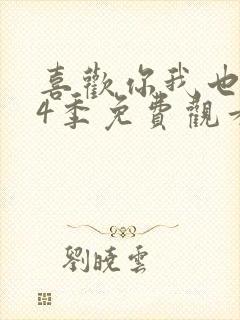 喜歡你我也
4季免費觀看
劉曉雲